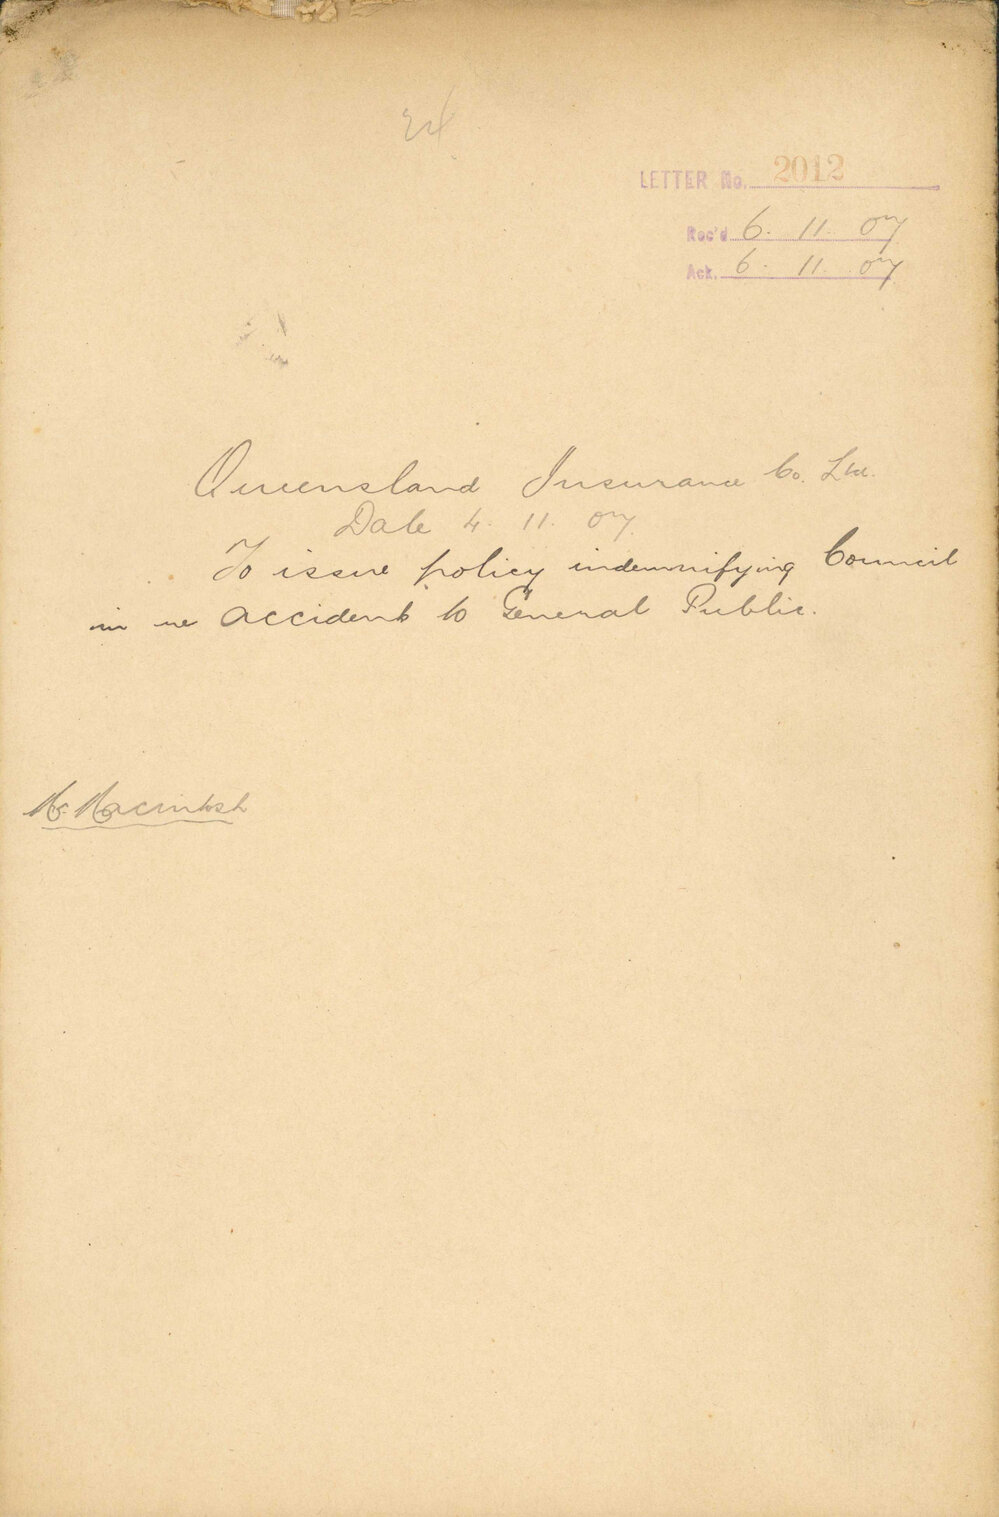 LETTER No. 2012
Rec'd 6. 11. 07
Ack. 6. 11. 07
Queensland Insurance Co. Ltd.
Date 4. 11. 07.
To issue policy indemnifying Council
in re accidents to General Public.
Macintosh